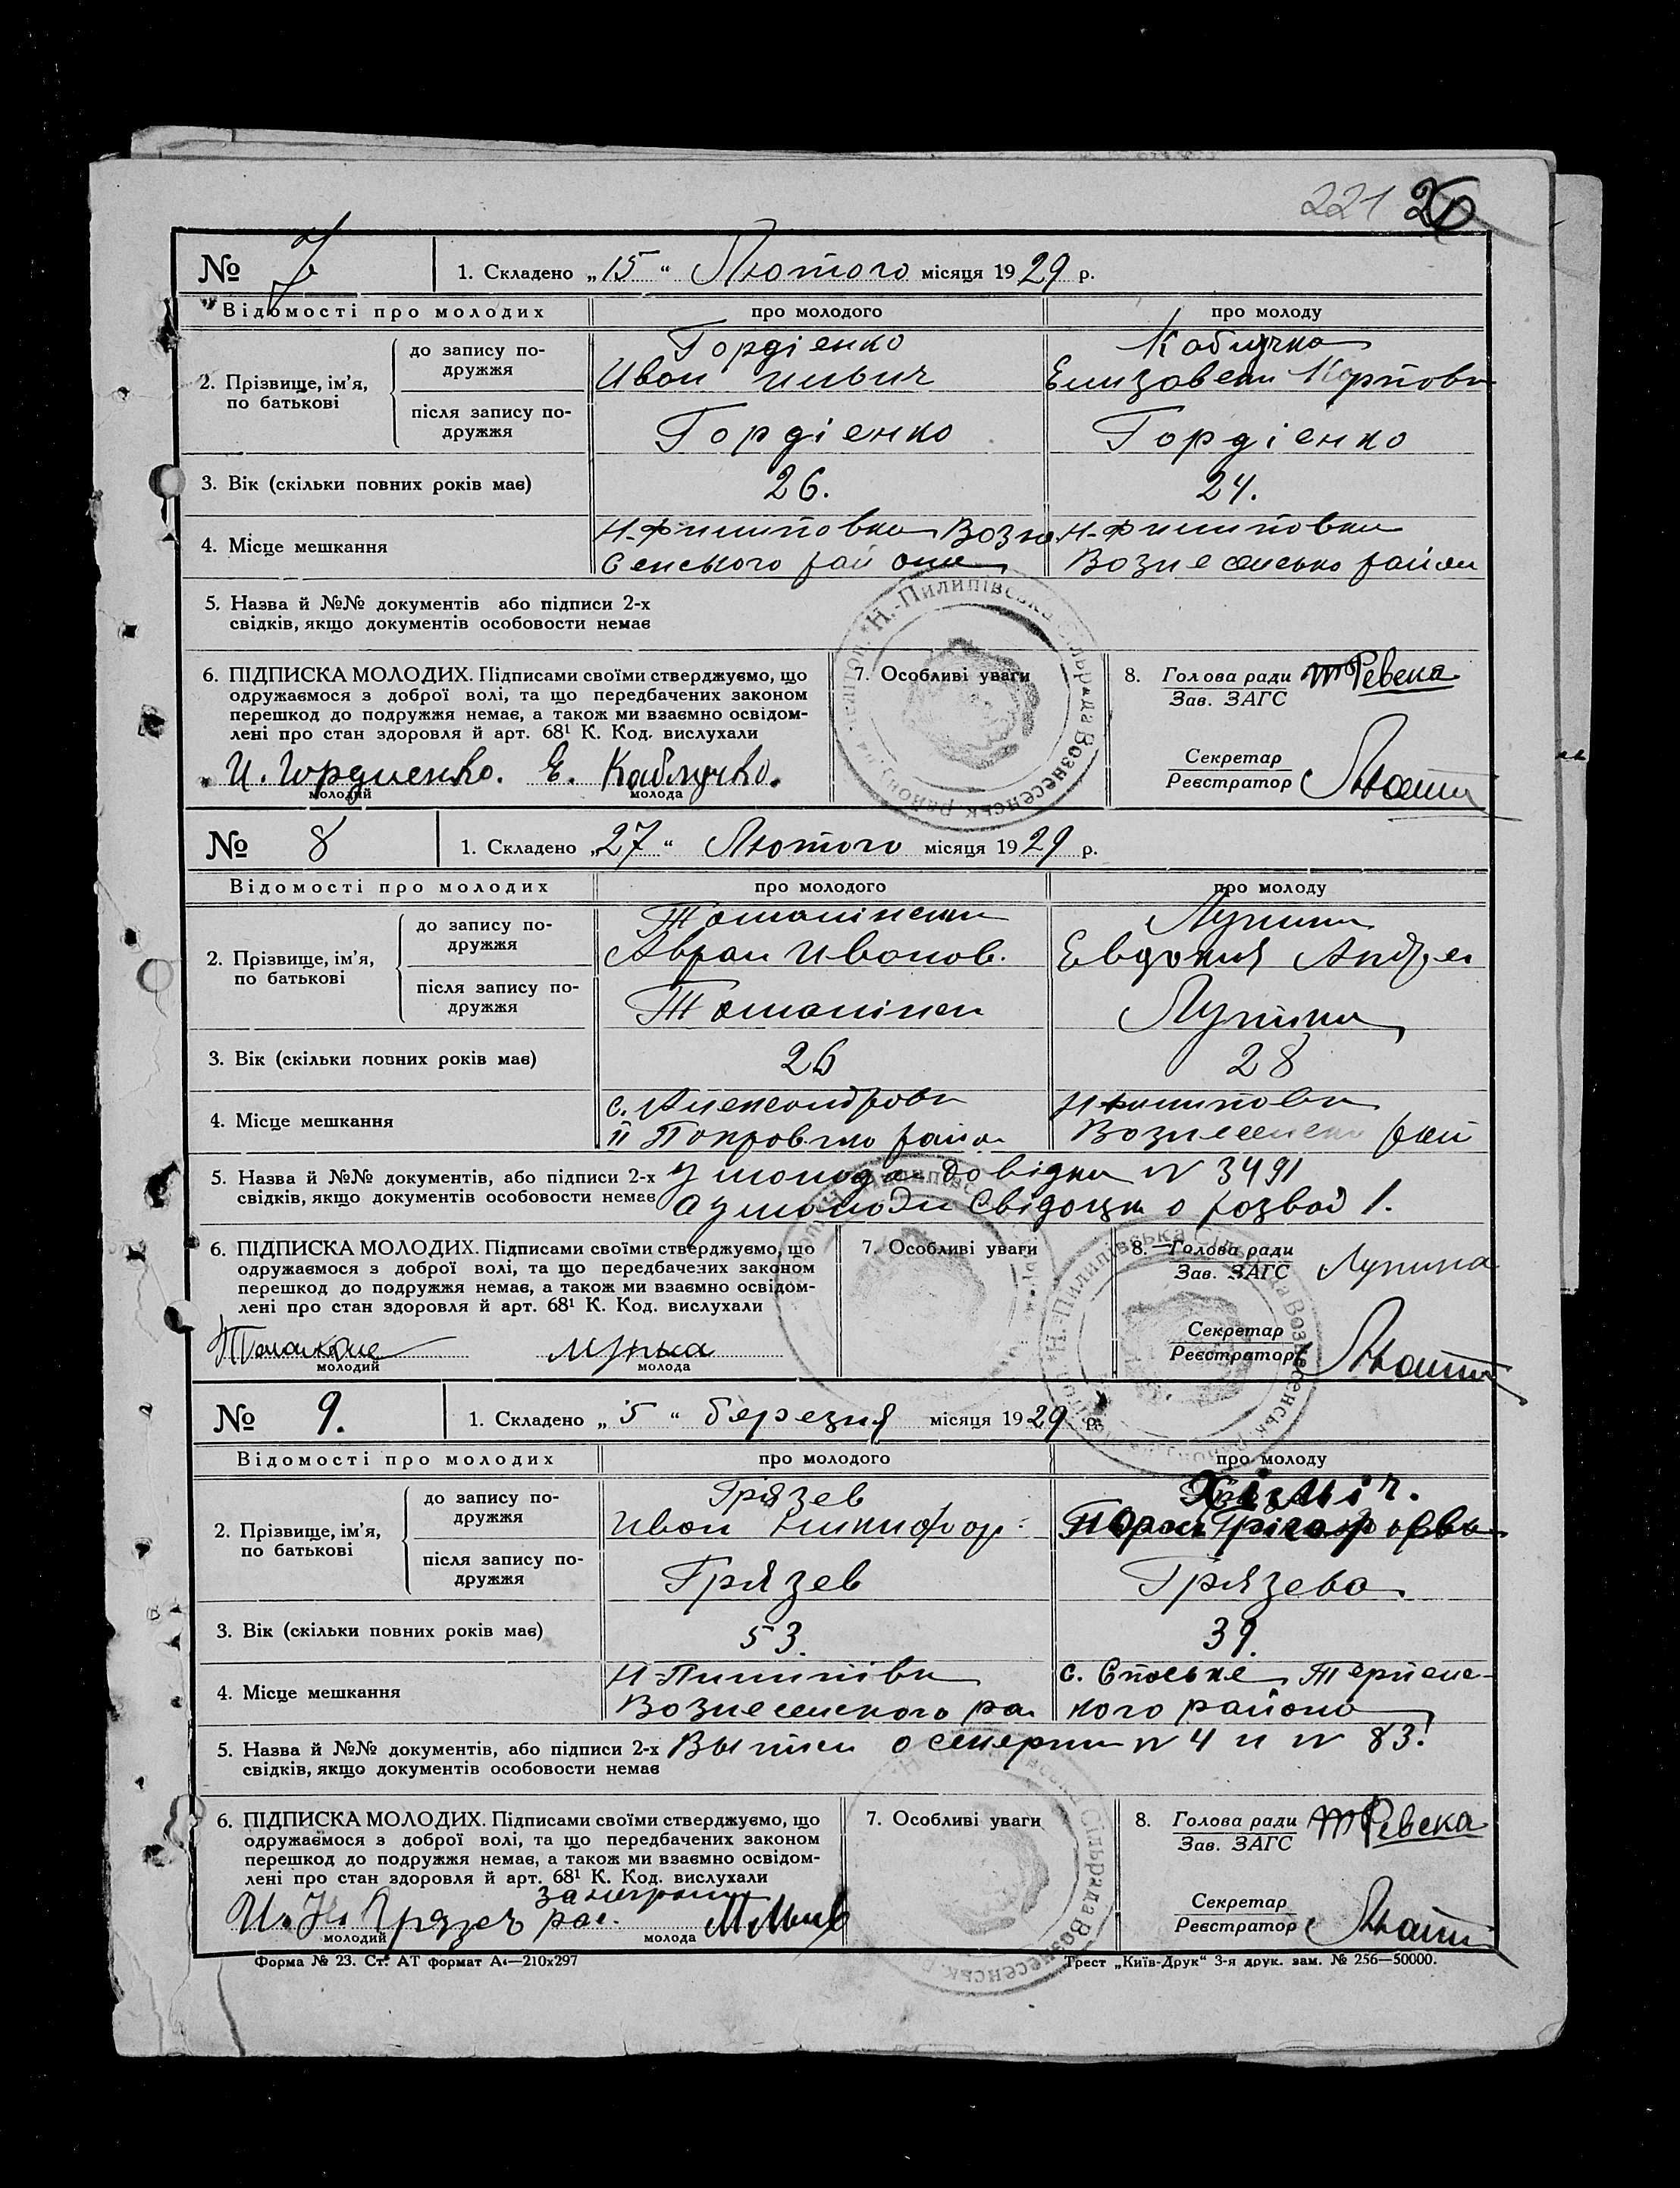 221 20
№ 7 1. Складено „15“ Лютого місяця 1929 р.
Відомості про молодих про молодого про молоду
2. Прізвище, ім’я, по батькові
до запису подружжя
Гордіенко
Иван Ильич
Каблучко
Елизавета Карповн
після запису подружжя
Гордіенко Гордіенко
3. Вік (скільки повних років має) 26. 24.
4. Місце мешкання
Н-Филиповка Возне
сенского района
Н-Филиповка
Вознесенсько района
5. Назва й №№ документів або підписи 2-х
свідків, якщо документів особовости немає
6. ПІДПИСКА МОЛОДИХ. Підписами своїми стверджуємо, що
одружаємося з доброї волі, та що передбачених законом
перешкод до подружжя немає, а також ми взаємно освідом-
лені про стан здоровля й арт. 68¹ К. Код. вислухали
И. Гордиенко. Е. Каблучко.
молодий молода
7. Особливі уваги
8. Голова ради Ревека
Зав. ЗАГС
Секретар
Реєстратор
№ 8 1. Складено „27“ Лютого місяця 1929 р.
Відомості про молодих про молодого про молоду
2. Прізвище, ім’я, по батькові
до запису подружжя
Аврам Иванов.
Лупина
Евдокия Андре
після запису подружжя
Лупина
3. Вік (скільки повних років має) 26 28
4. Місце мешкання
с. Александровк
ІІ Покров району
Н Филиповка
Вознесенско рай
5. Назва й №№ документів, або підписи 2-х
свідків, якщо документів особовости немає
у молода довідка № 3491
а у молоди Свідоцтв о розвод 1.
6. ПІДПИСКА МОЛОДИХ. Підписами своїми стверджуємо, що
одружаємося з доброї волі, та що передбачених законом
перешкод до подружжя немає, а також ми взаємно освідом-
лені про стан здоровля й арт. 68¹ К. Код. вислухали
молодий молода
7. Особливі уваги
8. Голова ради Лупина
Зав. ЗАГС
Секретар
Реєстратор
№ 9. 1. Складено „5“ березня місяця 1929 р.
Відомості про молодих про молодого про молоду
2. Прізвище, ім’я, по батькові
до запису подружжя
Грязев
Иван Никифор
Хіміч.
після запису подружжя
Грязев Грязева
3. Вік (скільки повних років має) 53. 39.
4. Місце мешкання
Н-Пилипівка
Вознесенского ра
с. Спаське Терпенс-
кого района
5. Назва й №№ документів, або підписи 2-х
свідків, якщо документів особовости немає
Выписи о смерти № 4 и № 83.
6. ПІДПИСКА МОЛОДИХ. Підписами своїми стверджуємо, що
одружаємося з доброї волі, та що передбачених законом
перешкод до подружжя немає, а також ми взаємно освідом-
лені про стан здоровля й арт. 68¹ К. Код. вислухали
И. Н. Грязев
рас.
молодий молода
7. Особливі уваги
8. Голова ради Ревека
Зав. ЗАГС
Секретар
Реєстратор
Форма № 23. Ст. АТ формат А₄—210х297
Трест „Київ-Друк“ 3-я друк. зам. № 256—50000.